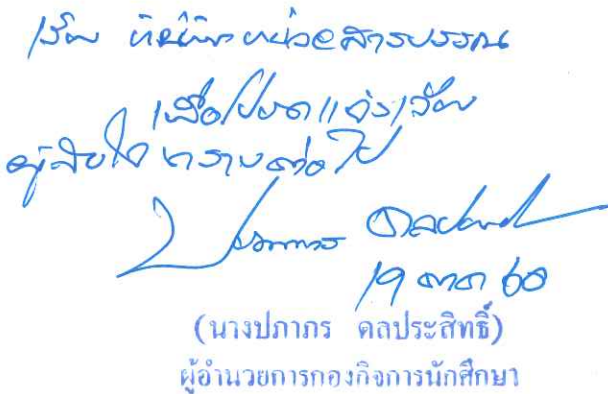 เรียน หัวหน้าหน่วยสารบรรณ
เพื่อโปรดแจ้งเวียน
ผู้สนใจ ทราบต่อไป
19 ตค 60
(นางปภากร ดลประสิทธิ์)
ผู้อำนวยการกองกิจการนักศึกษา